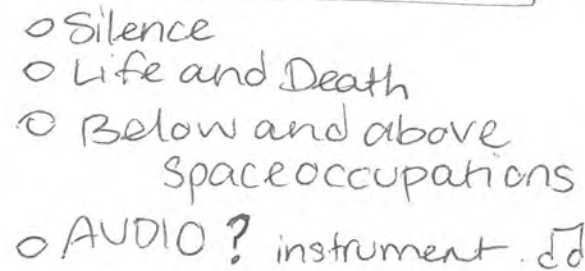 ○ Silence
○ Life and Death
○ Below and above
spaceoccupations
○ AUDIO? instrument. ♫